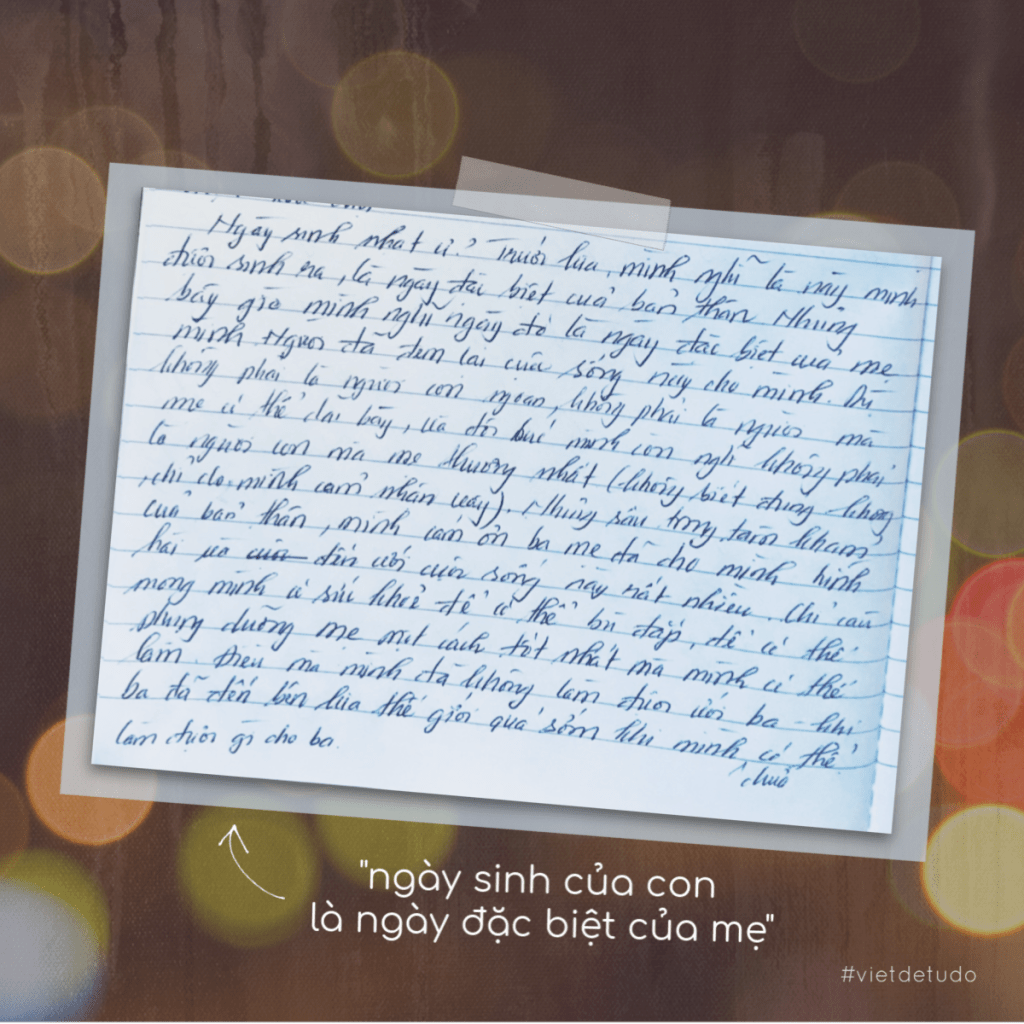 Ngày sinh nhật là? Trước kia, mình nghĩ là ngày mình
được sinh ra, là ngày đặc biệt của bản thân. Nhưng
bây giờ mình nghĩ ngày đó là ngày đặc biệt của mẹ
mình. Người đã đem lại cuộc sống này cho mình. Dù
không phải là người con ngoan, không phải là người mà
mẹ có thể dãi bày, và đôi lúc mình còn nghĩ không phải
là người con mà mẹ thương nhất (không biết đúng không
, chỉ do mình cảm nhận vậy). Nhưng sâu trong tâm khảm
của bản thân, mình cảm ơn ba mẹ đã cho mình hình
hài và đến với cuộc sống này rất nhiều. Chỉ cầu
mong mình có sức khoẻ để có thể bù đắp, để có thể
phụng dưỡng mẹ một cách tốt nhất mà mình có thể
làm. Điều mà mình đã không làm được với ba khi
ba đã đến bên kia thế giới quá sớm khi mình chưa có thể
làm được gì cho ba.
"ngày sinh của con
là ngày đặc biệt của mẹ"
#vietdetudo